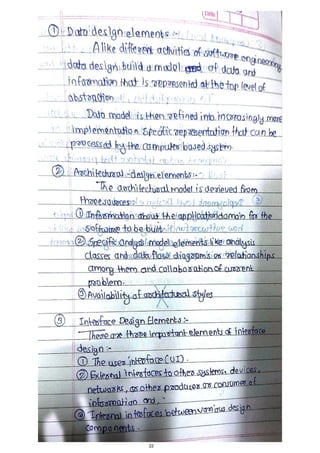 Date
① Data design elements :-
Alike different activities of software engineering
data design build a model of data and
information that is represented at the top level of
abstraction.
Data model is then refined into increasingly more
implementation specific representation that can be
processed by the computer based system.
② Architectural design elements :-
The architectural model is derieved from
three sources
① Information about the application domain for the
software to be built.
② Specific analysis model elements like analysis
classes and data flow diagram's or relationships
among them and collaboration of current
problem.
③ Availability of architectural styles
③ Interface Design Elements :-
There are three important elements of interface
design :-
① The user interface (UI).
② External interfaces to other systems, devices,
networks, or other producer or consumer of
information and.
③ Internal interfaces between various design
components.
22